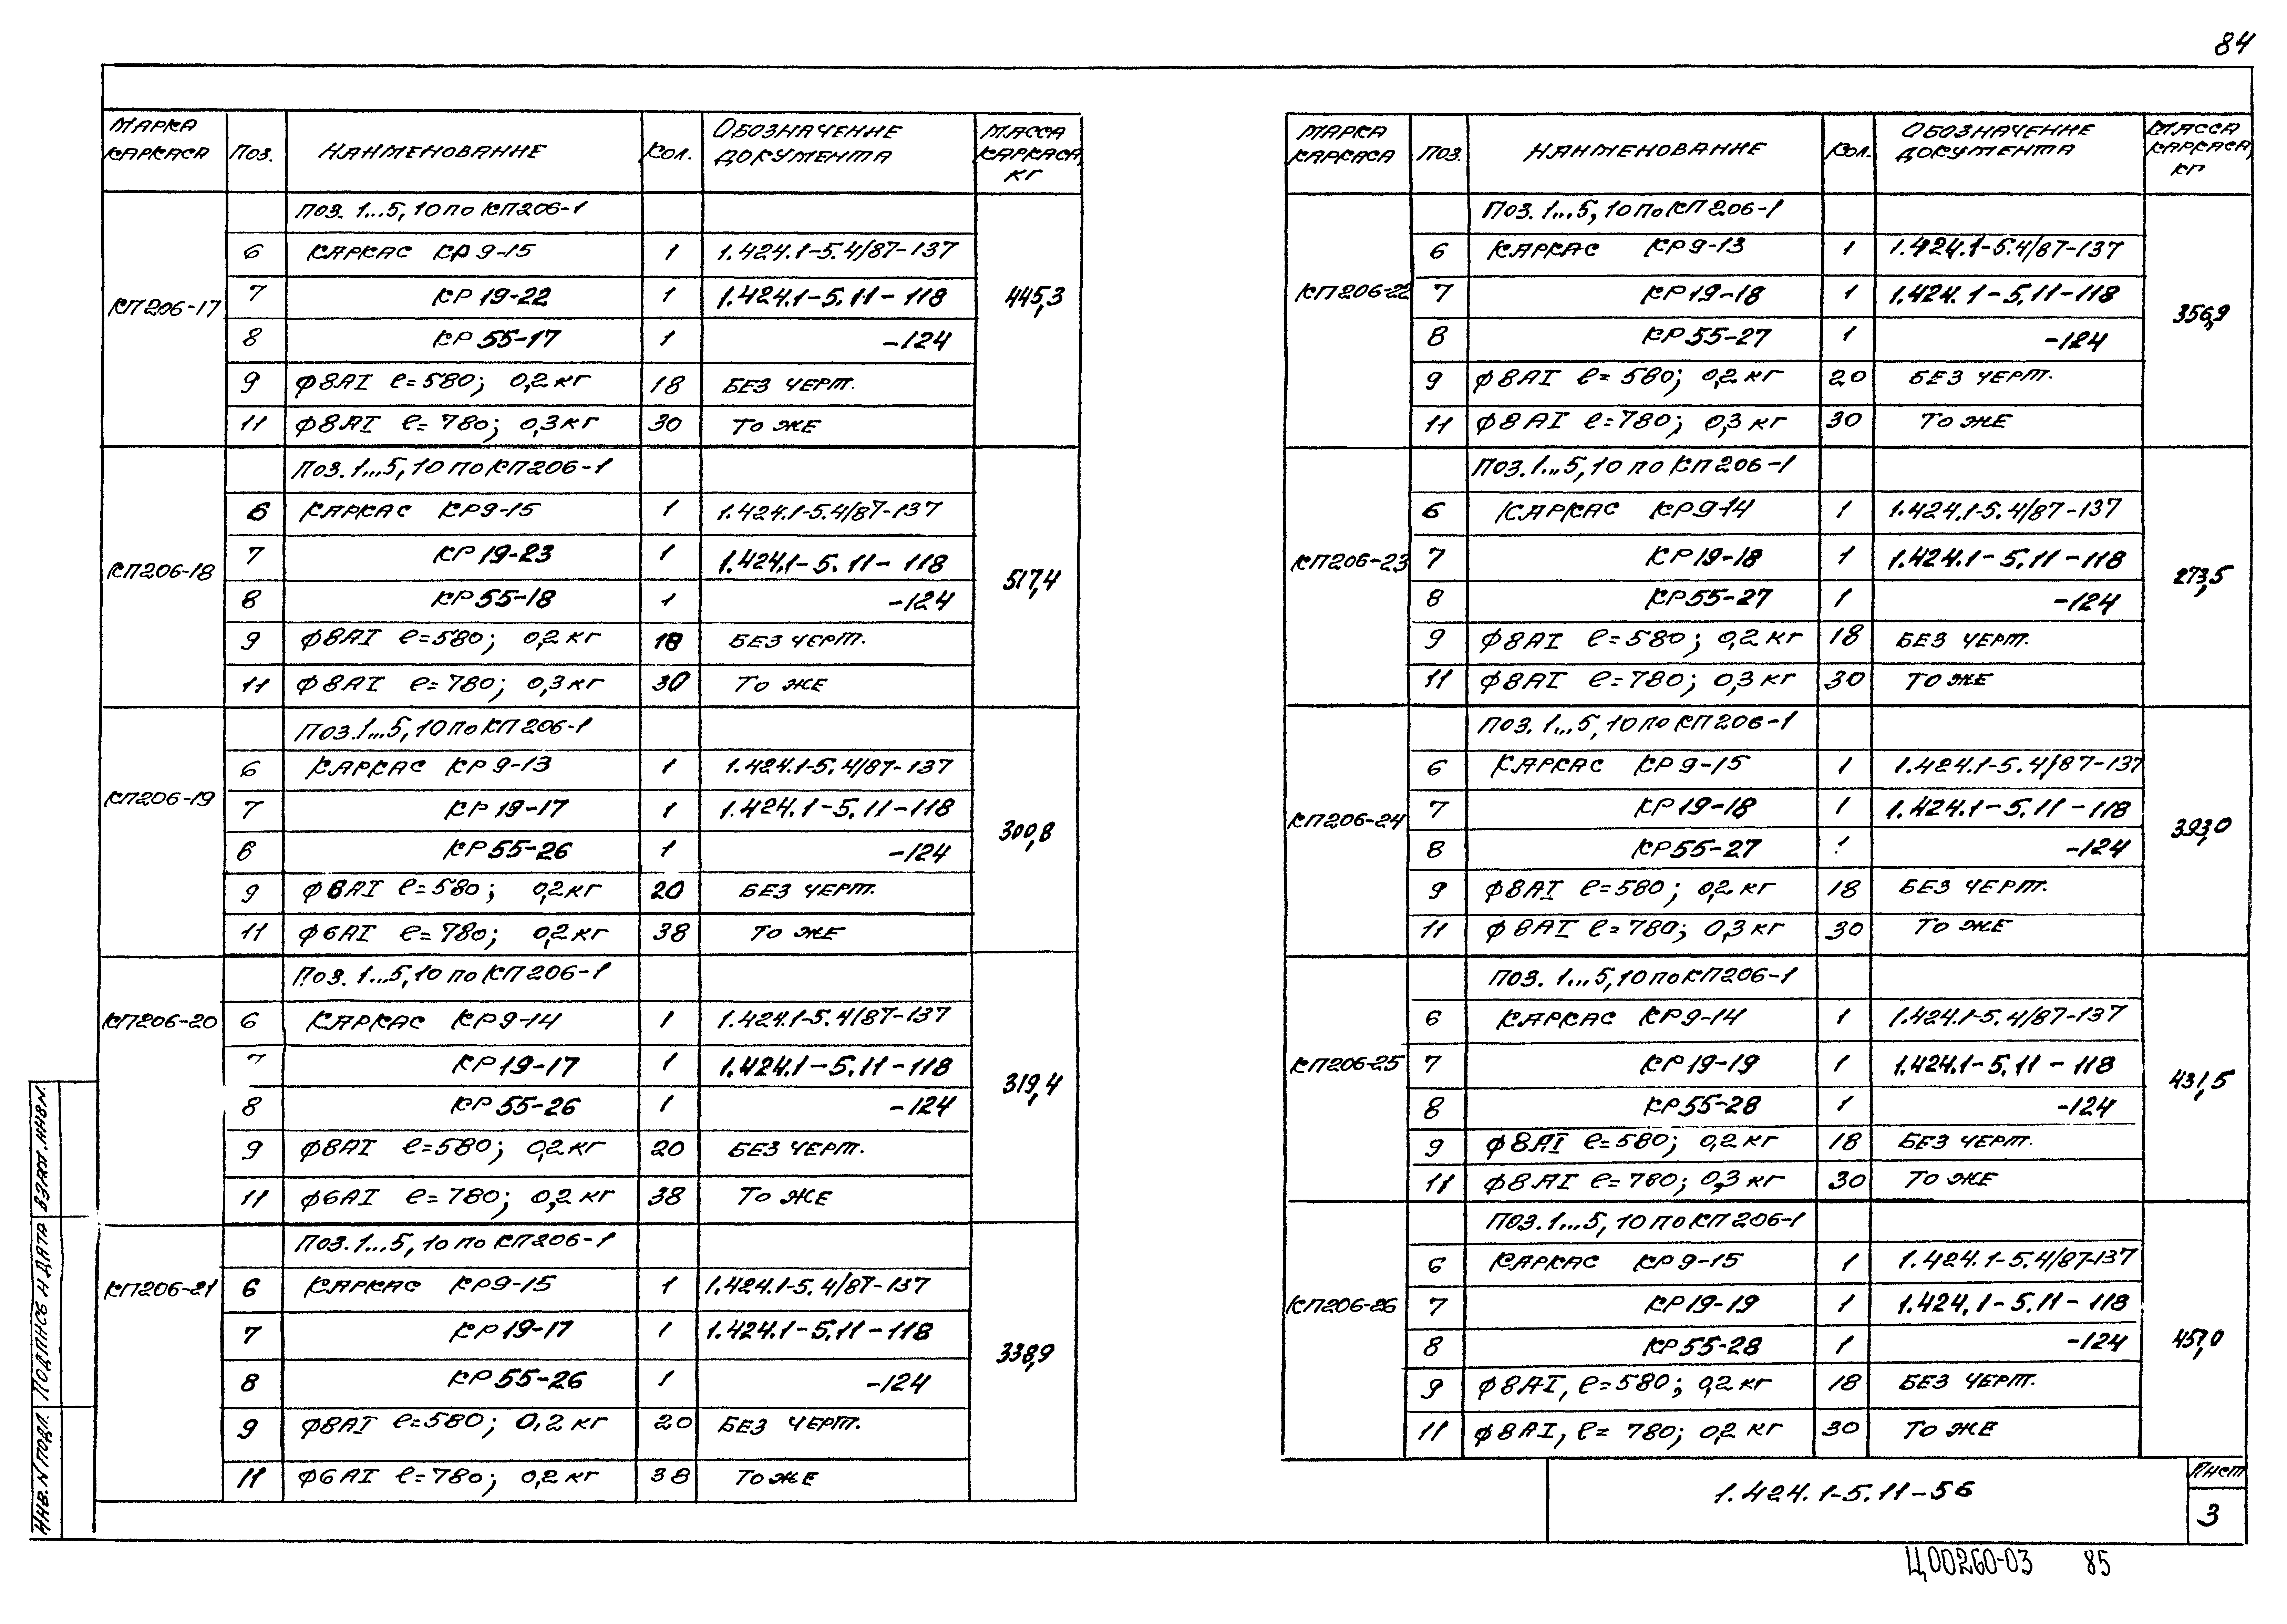 84
Марка каркаса Поз. Наименование Кол. Обозначение документа Масса каркаса, кг
Поз. 1...5, 10 по КП206-1
КП206-17 445,3
6 Каркас КР9-15 1 1.424.1-5.4/87-137
7 КР19-22 1 1.424.1-5.11-118
8 КР55-17 1 -124
9 ф8АI ℓ=580; 0,2кг 18 Без черт.
11 ф8АI ℓ=780; 0,3кг 30 То же
Поз. 1...5, 10 по КП206-1
КП206-18 517,4
6 Каркас КР9-15 1 1.424.1-5.4/87-137
7 КР19-23 1 1.424.1-5.11-118
8 КР55-18 1 -124
9 ф8АI ℓ=580; 0,2кг 18 Без черт.
11 ф8АI ℓ=780; 0,3кг 30 То же
Поз. 1...5, 10 по КП206-1
КП206-19 300,8
6 Каркас КР9-13 1 1.424.1-5.4/87-137
7 КР19-17 1 1.424.1-5.11-118
8 КР55-26 1 -124
9 ф8АI ℓ=580; 0,2кг 20 Без черт.
11 ф6АI ℓ=780; 0,2кг 38 То же
Поз. 1...5, 10 по КП206-1
КП206-20 319,4
6 Каркас КР9-14 1 1.424.1-5.4/87-137
7 КР19-17 1 1.424.1-5.11-118
8 КР55-26 1 -124
9 ф8АI ℓ=580; 0,2кг 20 Без черт.
11 ф6АI ℓ=780; 0,2кг 38 То же
Поз. 1...5, 10 по КП206-1
КП206-21 338,9
6 Каркас КР9-15 1 1.424.1-5.4/87-137
7 КР19-17 1 1.424.1-5.11-118
8 КР55-26 1 -124
9 ф8АI ℓ=580; 0,2кг 20 Без черт.
11 ф6АI ℓ=780; 0,2кг 38 То же
Марка каркаса Поз. Наименование Кол. Обозначение документа Масса каркаса, кг
Поз. 1...5, 10 по КП206-1
КП206-22 356,9
6 Каркас КР9-13 1 1.424.1-5.4/87-137
7 КР19-18 1 1.424.1-5.11-118
8 КР55-27 1 -124
9 ф8АI ℓ=580; 0,2кг 20 Без черт.
11 ф8АI ℓ=780; 0,3кг 30 То же
Поз. 1...5, 10 по КП206-1
КП206-23 273,5
6 Каркас КР9-14 1 1.424.1-5.4/87-137
7 КР19-18 1 1.424.1-5.11-118
8 КР55-27 1 -124
9 ф8АI ℓ=580; 0,2кг 18 Без черт.
11 ф8АI ℓ=780; 0,3кг 30 То же
Поз. 1...5, 10 по КП206-1
КП206-24 393,0
6 Каркас КР9-15 1 1.424.1-5.4/87-137
7 КР19-18 1 1.424.1-5.11-118
8 КР55-27 1 -124
9 ф8АI ℓ=580; 0,2кг 18 Без черт.
11 ф8АI ℓ=780; 0,3кг 30 То же
Поз. 1...5, 10 по КП206-1
КП206-25 431,5
6 Каркас КР9-14 1 1.424.1-5.4/87-137
7 КР19-19 1 1.424.1-5.11-118
8 КР55-28 1 -124
9 ф8АI ℓ=580; 0,2кг 18 Без черт.
11 ф8АI ℓ=780; 0,3кг 30 То же
Поз. 1...5, 10 по КП206-1
КП206-26 451,0
6 Каркас КР9-15 1 1.424.1-5.4/87-137
7 КР19-19 1 1.424.1-5.11-118
8 КР55-28 1 -124
9 ф8АI, ℓ=580; 0,2кг 18 Без черт.
11 ф8АI, ℓ=780; 0,2кг 30 То же
Инв.N подл. Подпись и дата Взам.инв.N.
1.424.1-5.11-56
Лист
3
Ц00260-03 85